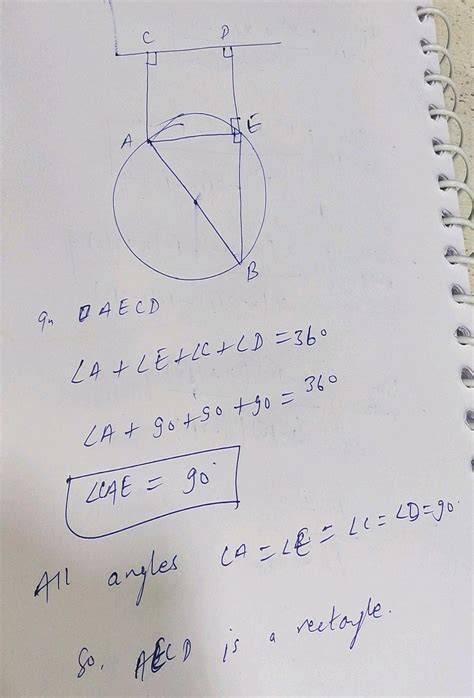 C D
A E
B
In □AECD
∠A + ∠E + ∠C + ∠D = 360
∠A + 90 + 90 + 90 = 360
∠CAE = 90°
All angles ∠A = ∠E = ∠C = ∠D = 90°
So, AECD is a rectangle.